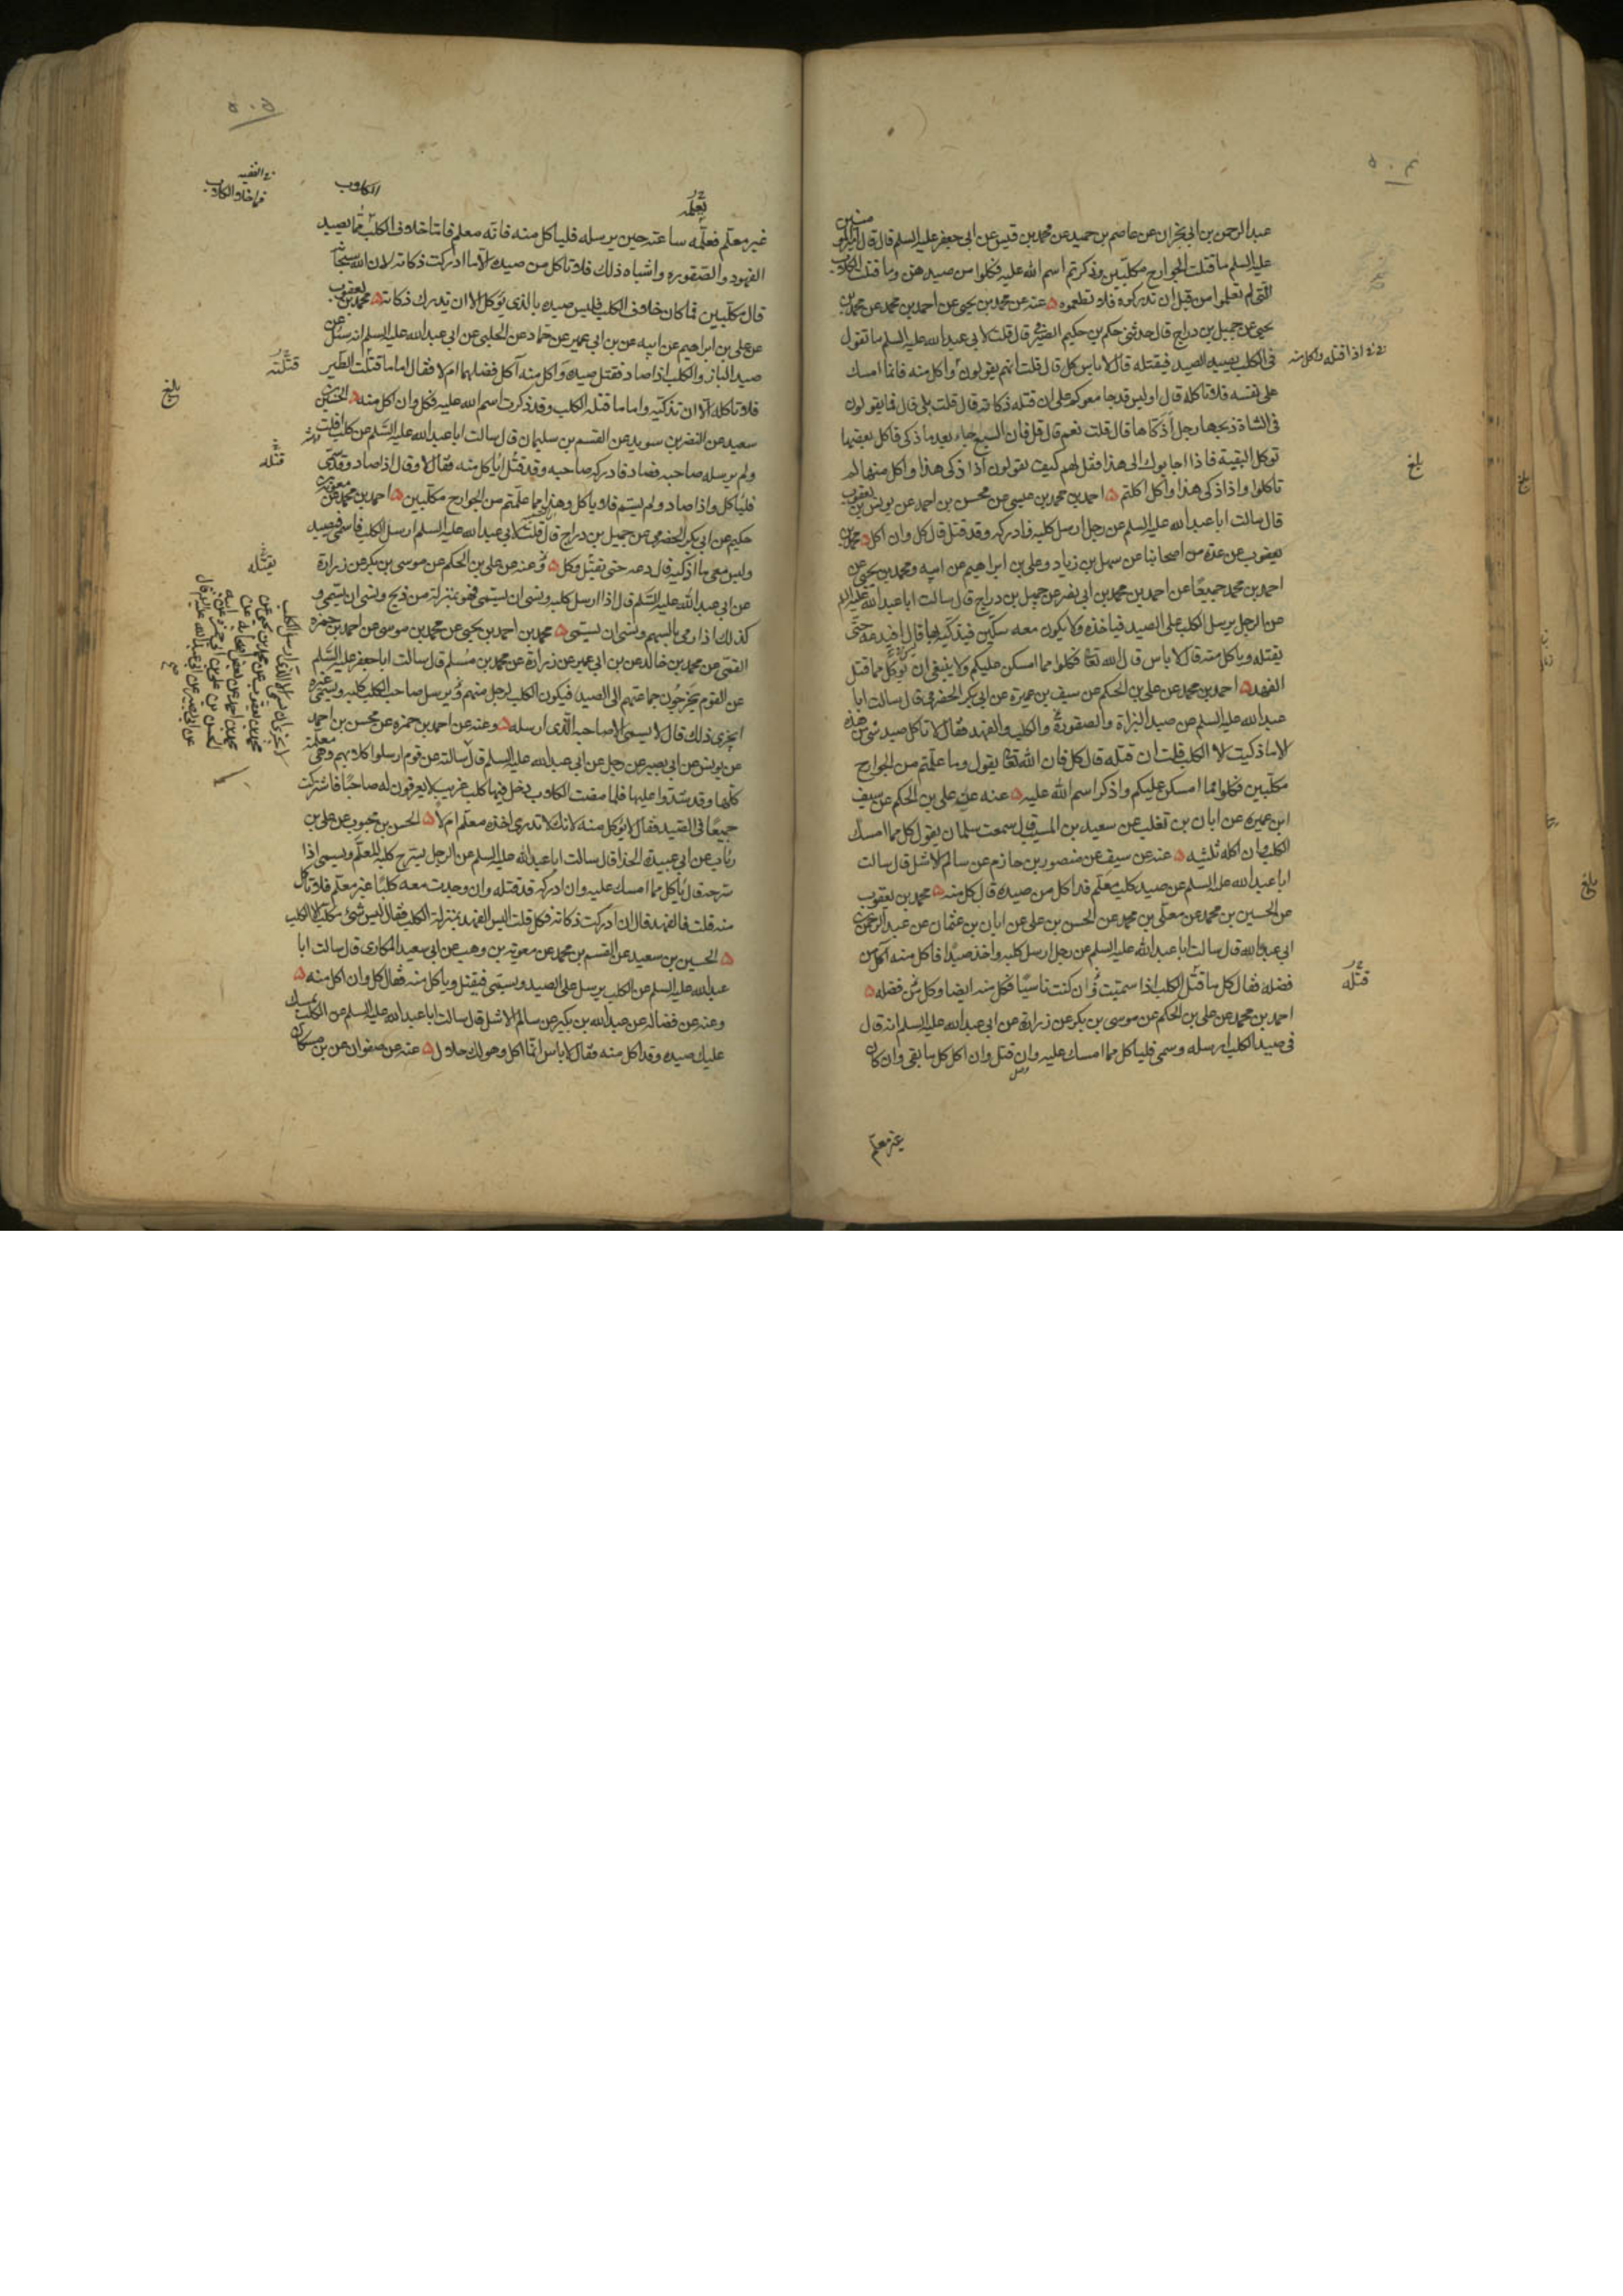 ٥٠٤
عبد الرحمن بن ابي نجران عن عاصم بن حميد عن محمد بن قيس عن ابي جعفر عليه السلم قال قال امير المؤمنين
عليه السلم ما قتلت الجوارح مكلبين وذكرتم اسم الله عليه فكلوا من صيدهن وما قتلت الكلاب
التي لم تعلموا من قبل ان تدركوه فلا تطعموه ٥ عنه عن محمد بن يحيى عن احمد بن محمد عن محمد بن
يحيى عن جميل بن دراج قال حدثني حكم بن حكيم الصيرفي قال قلت لابي عبد الله عليه السلم ما تقول
في الكلب يصيد الصيد فيقتله قال لا باس كل قال قلت انهم يقولون واكل منه فانما امسك
اذا قتله واكل منه
على نفسه فلا تاكله قال اوليس قد جامعوكم على ان قتله ذكاته قال قلت بلى قال فما يقولون
في الشاة ذبحها رجل اذكاها قال قلت نعم قال قل فان السبع جاء بعد ما ذكى فاكل بعضها
توكل البقية فاذا اجابوك الى هذا فقل لهم كيف تقولون اذا ذكى هذا واكل منها لم
بلغ
تاكلوا واذا ذكى هذا واكل اكلتم ٥ احمد بن محمد بن عيسى عن محسن بن احمد عن يونس بن يعقوب
قال سالت ابا عبد الله عليه السلم عن رجل ارسل كلبه فادركه وقد قتل قال كل وان اكل ٥ محمد بن
يعقوب عن عدة من اصحابنا عن سهل بن زياد وعلي بن ابراهيم عن ابيه ومحمد بن يحيى عن
احمد بن محمد جميعا عن احمد بن محمد بن ابي نصر عن جميل بن دراج قال سالت ابا عبد الله عليه السلم
عن الرجل يرسل الكلب على الصيد فياخذه ولا يكون معه سكين فيذكيه بها قال افيدعه حتى
يقتله وياكل منه قال لا باس قال الله تعا فكلوا مما امسكن عليكم ولا ينبغي ان يؤكل مما قتل
الفهد ٥ احمد بن محمد عن علي بن الحكم عن سيف بن عميرة عن ابي بكر الحضرمي قال سالت ابا
عبد الله عليه السلم عن صيد البزاة والصقورة والكلب والفهد فقال لا تاكل صيد شئ من هذه
الا ما ذكيت الا الكلب قلت ان قتله قال كل فان الله تعا يقول وما علمتم من الجوارح
مكلبين فكلوا مما امسكن عليكم واذكرا اسم الله عليه ٥ عنه عن علي بن الحكم عن سيف
ابن عميرة عن ابان بن تغلب عن سعيد بن المسيب قال سمعت سلمان يقول كل مما امسك
الكلب وان اكله ثلثيه ٥ عنه عن سيف عن منصور بن حازم عن سالم الاشل قال سالت
ابا عبد الله عليه السلم عن صيد كلب معلم قد اكل من صيده قال كل منه ٥ محمد بن يعقوب
عن الحسين بن محمد عن معلى بن محمد عن الحسن بن علي عن ابان بن عثمان عن عبد الرحمن بن
ابي عبد الله قال سالت ابا عبد الله عليه السلم عن رجل ارسل كلبه واخذ صيدا فاكل منه اكل من
فضله فقال كل ما قتل الكلب اذا سميت وان كنت ناسيا فكل منه ايضا وكل من فضله ٥
قتله
احمد بن محمد عن علي بن الحكم عن موسى بن بكر عن زرارة عن ابي عبد الله عليه السلم انه قال
في صيد الكلب ارسله وسمى فلياكل مما امسك عليه وان قتل وان اكل كل ما بقي وان كان
غير معلم
٥٠٥
في الفقيه
فما خلا الكلاب
الكلاب
يعلمه
غير معلم فعلمه ساعته حين يرسله فلياكل منه فانه معلم فاما خلاف الكلب مما يصيد
الفهود والصقوره واشباه ذلك فلا تاكل من صيده الا ما ادركت ذكاته لان الله سبحانه
قال مكلبين فما كان خلاف الكلب فليس صيده بالذي يؤكل الا ان تدرك ذكاته ٥ محمد بن يعقوب
عن علي بن ابراهيم عن ابيه عن بن ابي عمير عن حماد عن الحلبي عن ابي عبد الله عليه السلم انه سئل عن
صيد الباز والكلب اذا صاد فقتل صيده واكل منه آكل فضلهما ام لا فقال اما ما قتلت الطير
قتلته
فلا تاكله الا ان تذكيه واما ما قتله الكلب وقد ذكرت اسم الله عليه فكل وان اكل منه ٥ الحسين بن
بلغ
سعيد عن النضر بن سويد عن القسم بن سليمان قال سالت ابا عبد الله عليه السلم عن كلب افلت
ولم يرسله صاحبه فصاد فادركه صاحبه وقد قتله اياكل منه فقال لا وقال اذا صاد وقد سمى
قتله
فلياكل واذا صاد ولم يسم فلا ياكل وهذا مما علمتم من الجوارح مكلبين ٥ احمد بن محمد عن معوية بن
حكيم عن ابي بكر الحضرمي عن جميل بن دراج قال قلت لابي عبد الله عليه السلم ارسل الكلب فاسمي فيصيد
وليس معي ما اذكيه قال دعه حتى يقتل وكل ٥ وعنه عن علي بن الحكم عن موسى بن بكر عن زرارة
يقتله
عن ابي عبد الله عليه السلم قال اذا ارسل كلبه ونسي ان يسمي فهو بمنزلة من ذبح ونسي ان يسمي و
كذلك اذا رمى بالسهم ونسي ان يسمي ٥ محمد بن احمد بن يحيى عن محمد بن موسى عن احمد بن حمزه
القمي عن محمد بن خالد عن بن ابي عمير عن زرارة عن محمد بن مسلم قال سالت ابا جعفر عليه السلم
عن القوم يخرجون جماعتهم الى الصيد فيكون الكلب لرجل منهم ويرسل صاحب الكلب كلبه ويسمي غيره
ايجزي ذلك قال لا يسمي الا صاحبه الذي ارسله ٥ وعنه عن احمد بن حمزه عن محسن بن احمد
عن يونس عن ابي بصير عن رجل عن ابي عبد الله عليه السلم قال سالته عن قوم ارسلوا كلابهم وهي معلمة
كلها وقد سموا عليها فلما مضت الكلاب دخل فيها كلب غريب لا يعرفون له صاحبا فاشتركت
جميعا في الصيد فقال لا يؤكل منه لانك لا تدري اخذه معلم ام لا ٥ الحسن بن محبوب عن علي بن
رئاب عن ابي عبيدة الحذا قال سالت ابا عبد الله عليه السلم عن الرجل يسرح كلبه المعلم ويسمي اذا
سرحه قال ياكل مما امسك عليه وان ادركه قد قتله وان وجدت معه كلبا غير معلم فلا تاكل
منه قلت فالفهد قال ان ادركت ذكاته فكل قلت اليس الفهد بمنزلة الكلب فقال ليس شئ مكلب الا الكلب
٥ الحسين بن سعيد عن القسم بن محمد عن معوية بن وهب عن ابي سعيد المكاري قال سالت ابا
عبد الله عليه السلم عن الكلب يرسل على الصيد ويسمى فيقتل وياكل منه فقال كل وان اكل منه ٥
وعنه عن فضالة عن عبد الله بن بكير عن سالم الاشل قال سالت ابا عبد الله عليه السلم عن الكلب يمسك
عليك صيده وقد اكل منه فقال لا باس انما اكل وهو لك حلال ٥ عنه عن صفوان عن بن مسكان
محمد بن يعقوب عن محمد بن يحيى عن
محمد بن احمد عن بعض اصحابه عن